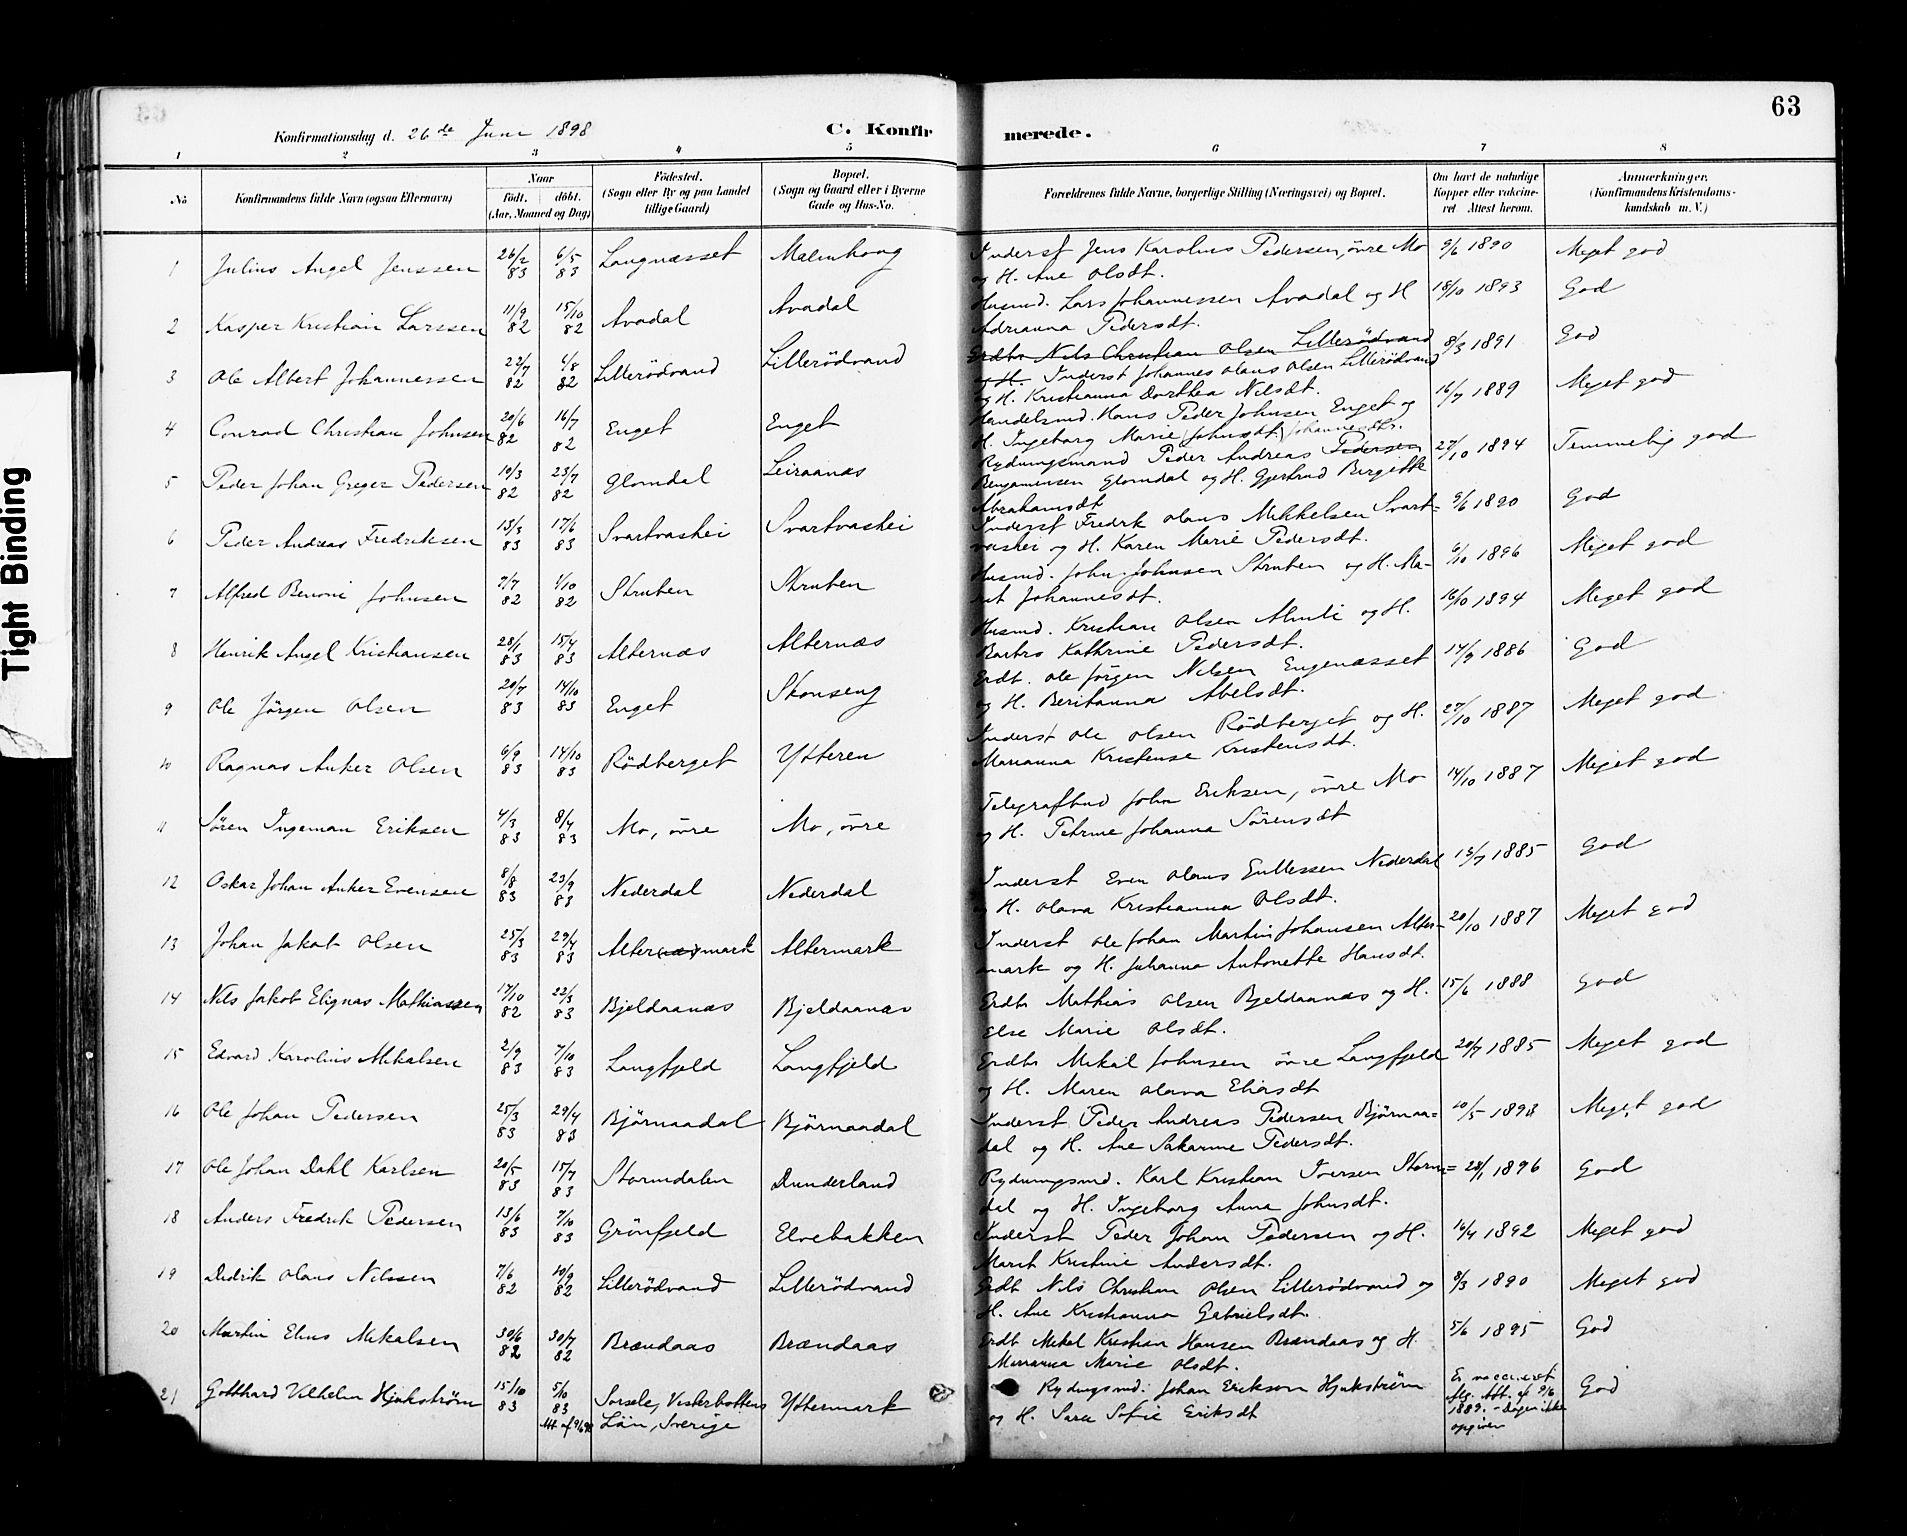 63
Konfirmationsdag d. 26de Juni 1898
C. Konfirmerede.
1 2 3 4 5 6 7 8
No
Konfirmandens fulde Navn (ogsaa Efternavn)
Naar
født. døbt.
(Aar, Maaned og Dag)
Fødested.
(Sogn eller By og paa Landet
tillige Gaard)
Bopæl.
(Sogn og Gaard eller i Byerne
Gade og Hus-No.
Forældrenes fulde Navne, borgerlige Stilling (Næringsvei) og Bopæl.
Om havt de naturlige
Kopper eller vakcine-
ret Attest herom.
Anmærkninger.
(Konfirmandens Kristendoms-
kundskab m. V.)
1 Julius Angel Jenssen 26/2 83 6/5 83 Langnæsset Malmhaug
Inderst Jens Karolius Pedersen, övre Mo 9/6 1890 Meget god
og H. Ane Olsdt.
2 Kasper Kristian Larssen 11/9 82 15/10 82 Avadal Avadal
Husmd. Lars Johannessen Avadal og H 18/10 1893 God
Adrianna Pedersdt.
3 Ole Albert Johannessen 22/7 82 6/8 82 Lillerödvand Lillerödvand
Erdbr Nils Christian Olsen Lillerödvand 8/3 1891 God
og H. Inderst Johannes Olaus Olsen Lillerödvand
og H. Kristianna Dorthea Nilsdt.
4 Conrad Christian Johnsen 20/6 82 16/7 82 Enget Enget
Handelsmd. Hans Peder Johnsen Enget og 16/7 1889 Meget god
H. Ingeborg Marie Johnsdt. Johannesdtr.
5 Peder Johan Greger Pedersen 10/3 82 23/7 82 Glomdal Leiraanæs
Rydningsmand Peder Andreas Pedersen 27/10 1894 Temmelig god
Benjaminsen Glomdal og H. Gjertrud Birgitte
Abrahamsdt
6 Peder Andreas Fredriksen 13/3 83 17/6 83 Svartvashei Svartvashei
Inderst Fredrk Olaus Mikkelsen Svart= 9/6 1890 God
vashei og H. Karen Marie Pedersdt.
7 Alfred Benoni Johnsen 7/7 82 1/10 82 Struten Struten
Husmd. John Johnsen Struten og H. Ma- 6/10 1896 Meget god
rit Johannesdt.
8 Henrik Angel Kristiansen 28/1 83 15/4 83 Alternæs Alternæs
Husmd. Kristian Olsen Almli og H. 16/10 1894 Meget god
Barbro Kathrine Pedersdt.
9 Ole Jörgen Olsen 20/7 83 14/10 83 Enget Skonseng
Erdt. Ole Jörgen Nilsen Engenæsset 14/9 1886 God
og H. Beritanna Abelsdt.
10 Ragnar Anker Olsen 6/9 83 14/10 83 Rödberget Ytteren
Inderst Ole Olsen Rödberget og H. 27/10 1887 Meget god
Marianna Kristense Kristensdt.
11 Sören Ingeman Eriksen 4/3 83 8/4 83 Mo, övre Mo, övre
Telegrafbud John Eriksen, övre Mo 14/10 1887 Meget god
og H. Petrine Johanna Sörensdt
12 Oskar Johan Anker Evensen 8/8 83 23/9 83 Nederdal Nederdal
Inderst Even Olaus Gullessen Nederdal 13/7 1885 God
og H. Olava Kristianna Olsdt.
13 Johan Jakob Olsen 25/3 83 29/4 83 Alter(næs)mark Altermark
Inderst Ole Johan Martin Johansen Alter- 20/10 1887 Meget god
mark og H. Johanna Antonette Hansdt.
14 Nils Jakob Elignas Mathiassen 17/10 82 22/3 83 Bjeldaanæs Bjeldaanæs
Erdbr Mathias Olsen Bjeldaanæs og H. 15/6 1888 God
Else Marie Olsdt.
15 Edvard Karolius Mikalsen 2/9 83 7/10 83 Langfjeld Langfjeld
Erdbr Mikal Johnsen övre Langfjeld 20/7 1885 Meget god
og H. Maren Olava Eliasdt
16 Ole Johan Pedersen 25/3 83 29/4 83 Björnaadal Björnaadal
Inderst Peder Andreas Pedersen Björnaa= 10/5 1898 Meget god
dal og H. Ane Sakarine Pedersdt.
17 Ole Johan Dahl Karlsen 20/5 83 15/7 83 Stormdalen Dunderland
Rydningsmd. Karl Kristian Iversen Storm= 28/1 1896 God
dal og H. Ingeborg Anna Johnsdt.
18 Anders Fredrik Pedersen 13/6 83 7/10 83 Grönfjeld Elvebakken
Inderst Peder Johan Pedersen og H. 16/4 1892 Meget god
Marit Kristine Andersdt.
19 Didrik Olaus Nilssen 7/6 82 10/9 82 Lillerödvand Lillerödvand
Erdt Nils Christian Olsen Lillerödvand og 8/3 1890 Meget god
H. Ane Kristianna Gabrielsdt.
20 Martin Elius Mikalsen 30/6 82 30/7 82 Brændaas Brændaas
Erdt Mikal Kristian Hansen Brændaas og H. 5/6 1895 God
Marianna Marie Olsdt.
21 Gotthard Vilhelm Hjukström 15/10 83 5/10 83 Att af 9/6 98 Sorsele, Vesterbottens Yttermark
Län, Sverige
Rydngsmd. Johan Erikson Hjukström God
og H. Sara Sofie Eriksdt
Er vaccineret
flg. Att. af 9/6
1889. - Dagen ikke
opgiven
Tight Binding